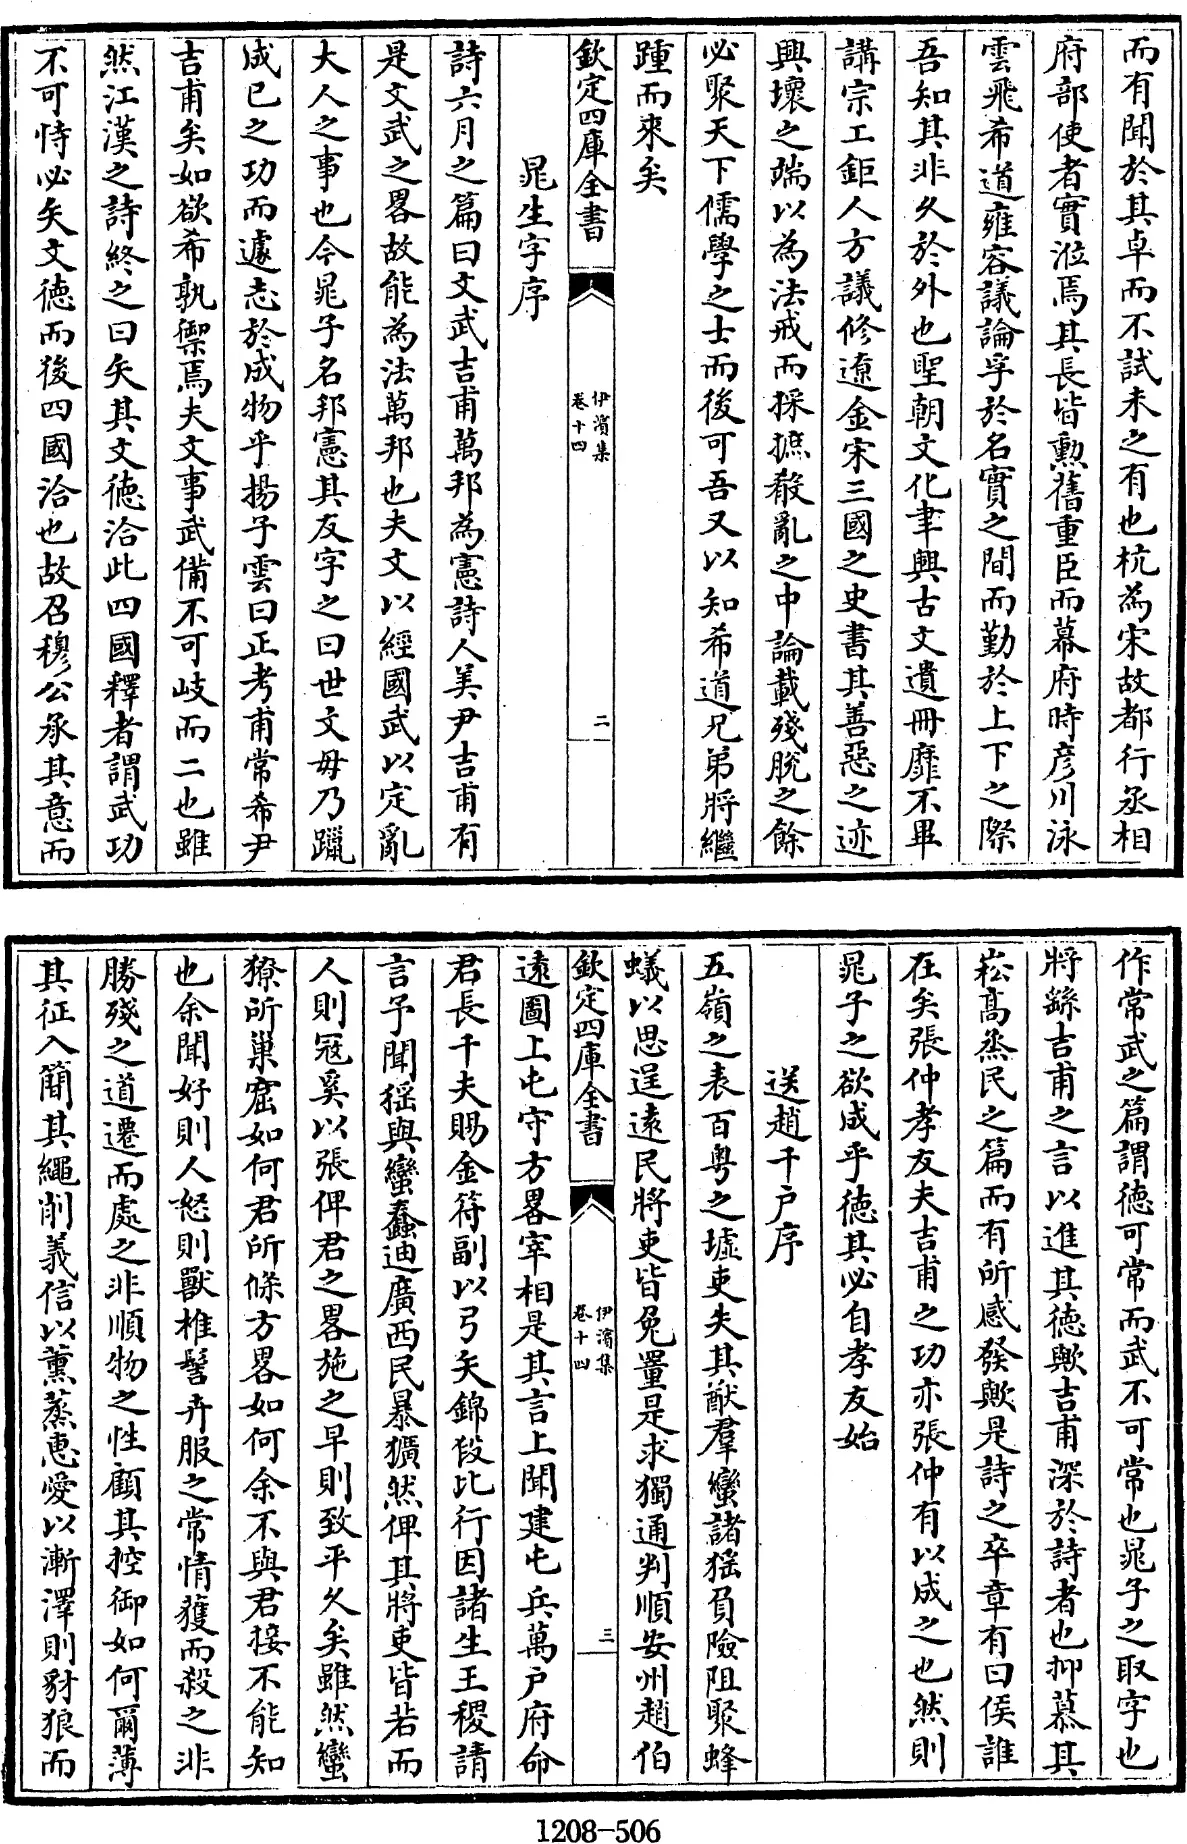 而有聞於其卓而不試未之有也杭為宋故都行丞相
府部使者實涖焉其長皆勲舊重臣而幕府時彦川泳
雲飛希道雍容議論孚於名實之間而勤於上下之際
吾知其非久於外也聖朝文化聿興古文遺冊靡不畢
講宗工鉅人方議修遼金宋三國之史書其善惡之迹
興壞之端以為法戒而採摭殽亂之中論載殘脫之餘
必聚天下儒學之士而後可吾又以知希道兄弟將繼
踵而來矣
欽定四庫全書
伊濱集
卷十四
二
晁生字序
詩六月之篇曰文武吉甫萬邦為憲詩人美尹吉甫有
是文武之畧故能為法萬邦也夫文以經國武以定亂
大人之事也今晁子名邦憲其友字之曰世文毋乃躐
成已之功而遽志於成物乎揚子雲曰正考甫常希尹
吉甫矣如欲希孰禦焉夫文事武備不可岐而二也雖
然江漢之詩終之曰矢其文徳洽此四國釋者謂武功
不可恃必矢文徳而後四國洽也故召穆公承其意而
作常武之篇謂徳可常而武不可常也晁子之取字也
將繇吉甫之言以進其徳歟吉甫深於詩者也抑慕其
崧高烝民之篇而有所感發歟是詩之卒章有曰侯誰
在矣張仲孝友夫吉甫之功亦張仲有以成之也然則
晁子之欲成乎徳其必自孝友始
送趙千户序
五嶺之表百粤之墟吏失其猷羣蠻諸猺負險阻聚蜂
蟻以思逞逺民將吏皆兔罝是求獨通判順安州趙伯
欽定四庫全書
伊濱集
卷十四
三
逺圖上屯守方畧宰相是其言上聞建屯兵萬户府命
君長千夫賜金符副以弓矢錦段比行因諸生王稷請
言予聞猺與蠻蠢迪廣西民暴獷然俾其將吏皆若而
人則冦奚以張俾君之畧施之早則致平久矣雖然蠻
獠所巢窟如何君所條方畧如何余不與君接不能知
也余聞好則人怒則獸椎髻卉服之常情獲而殺之非
勝殘之道遷而處之非順物之性顧其控御如何爾薄
其征入簡其繩削義信以薰蒸惠愛以漸澤則豺狼而
1208-506